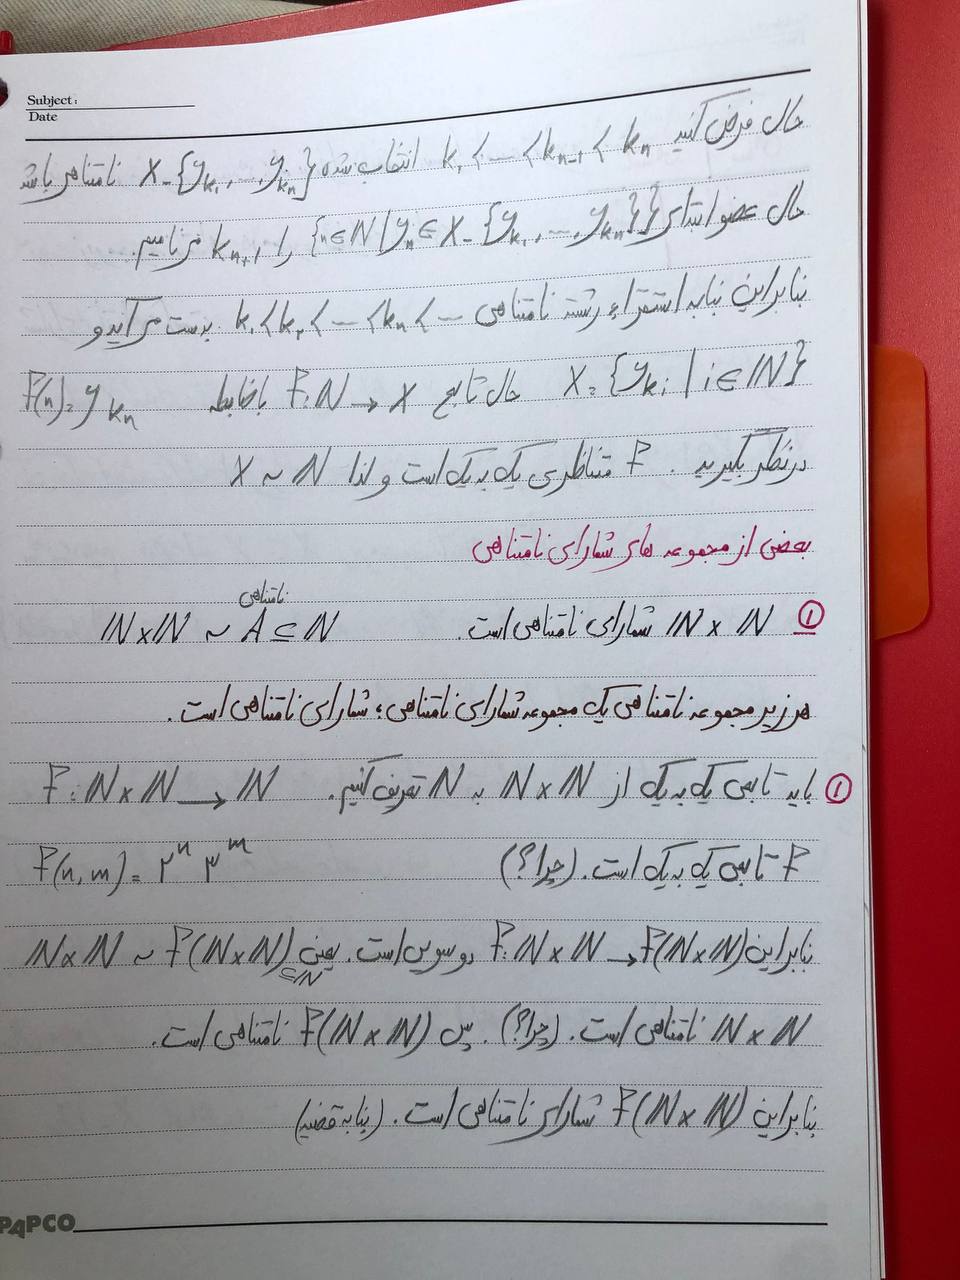 Subject:
Date
حال فرض کنید k₁ < … < kₙ₋₁ < kₙ انتخاب شده X - {yₖ₁, …, yₖₙ} نامتناهی باشد
حال عضو ابتدای {n ∈ ℕ | yₙ ∈ X - {yₖ₁, …, yₖₙ}} را kₙ₊₁ می نامیم.
بنابراین بنا به استقراء رشته نامتناهی k₁ < k₂ < … < kₙ < … بدست می آید و
X = {yₖᵢ | i ∈ ℕ} حال تابع F: ℕ → X با ضابطه F(n) = yₖₙ
در نظر بگیرید. F متناظری یک به یک است و لذا X ~ ℕ
بعضی از مجموعه های شمارای نامتناهی
① ℕ × ℕ شمارای نامتناهی است. ℕ×ℕ ~ A ⊆ ℕ نامتناهی
هر زیر مجموعه نامتناهی یک مجموعه شمارای نامتناهی، شمارای نامتناهی است.
① باید تابعی یک به یک از ℕ × ℕ به ℕ تعریف کنیم. F: ℕ × ℕ → ℕ
F تابعی یک به یک است. (چرا؟) F(n,m) = ۲ⁿ ۳ᵐ
بنابراین F: ℕ × ℕ → F(ℕ×ℕ) دوسویی است. یعنی ℕ×ℕ ~ F(ℕ×ℕ) ⊆ℕ
ℕ × ℕ نامتناهی است. (چرا؟). پس F(ℕ × ℕ) نامتناهی است.
بنابراین F(ℕ × ℕ) شمارای نامتناهی است. (بنا به قضیه)
PAPCO